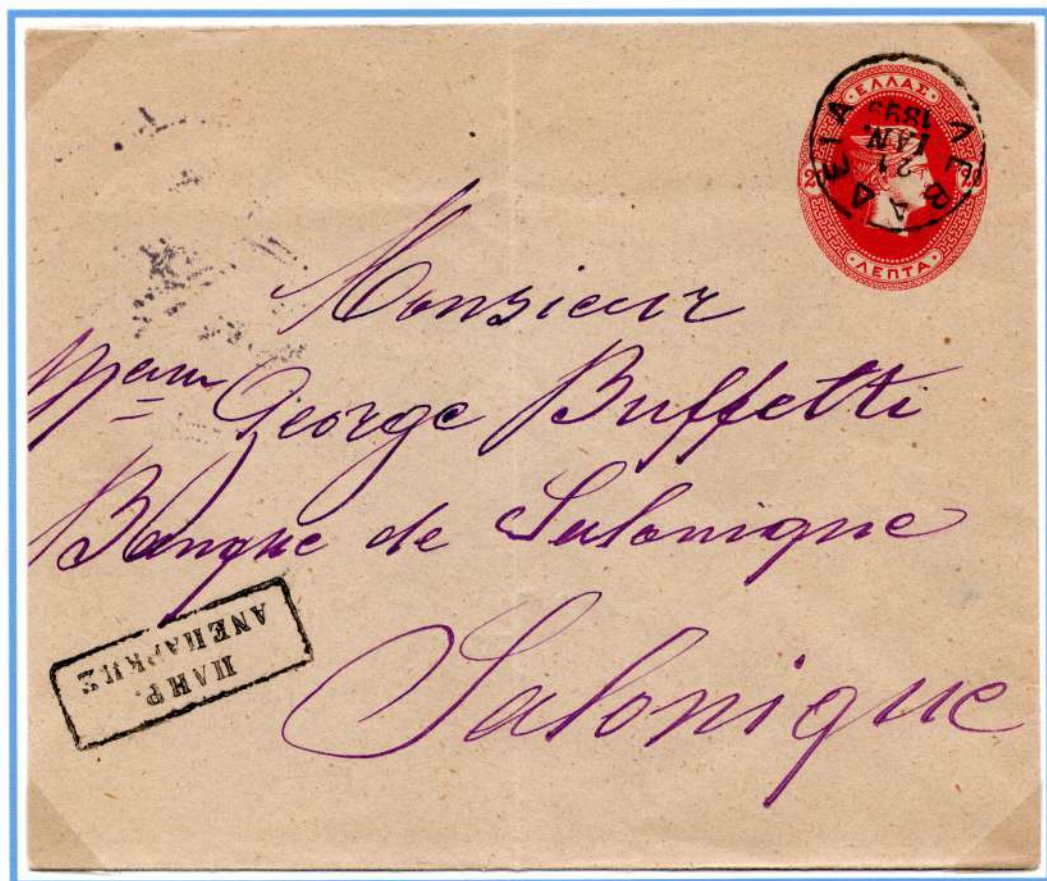 ΕΛΛΑΣ
20 20
ΛΕΠΤΑ
ΛΕΒΑΔΕΙΑ
21
ΙΑΝ.
Monsieur
George Buffetti
Banque de Salonique
Salonique
ΠΛΗΡ.
ΑΝΕΠΑΡΚΗΣ